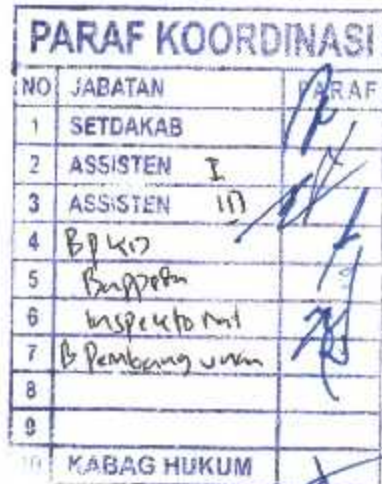 PARAF KOORDINASI
NO JABATAN PARAF
1 SETDAKAB
2 ASSISTEN I
3 ASSISTEN III
4 BPKD
5 Bappeda
6 Inspektorat
7 B Pembangunan
8
9
10 KABAG HUKUM